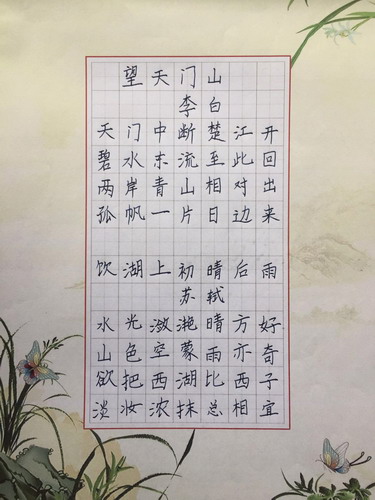 望天门山
李白
天门中断楚江开
碧水东流至此回
两岸青山相对出
孤帆一片日边来
饮湖上初晴后雨
苏轼
水光潋滟晴方好
山色空蒙雨亦奇
欲把西湖比西子
淡妆浓抹总相宜